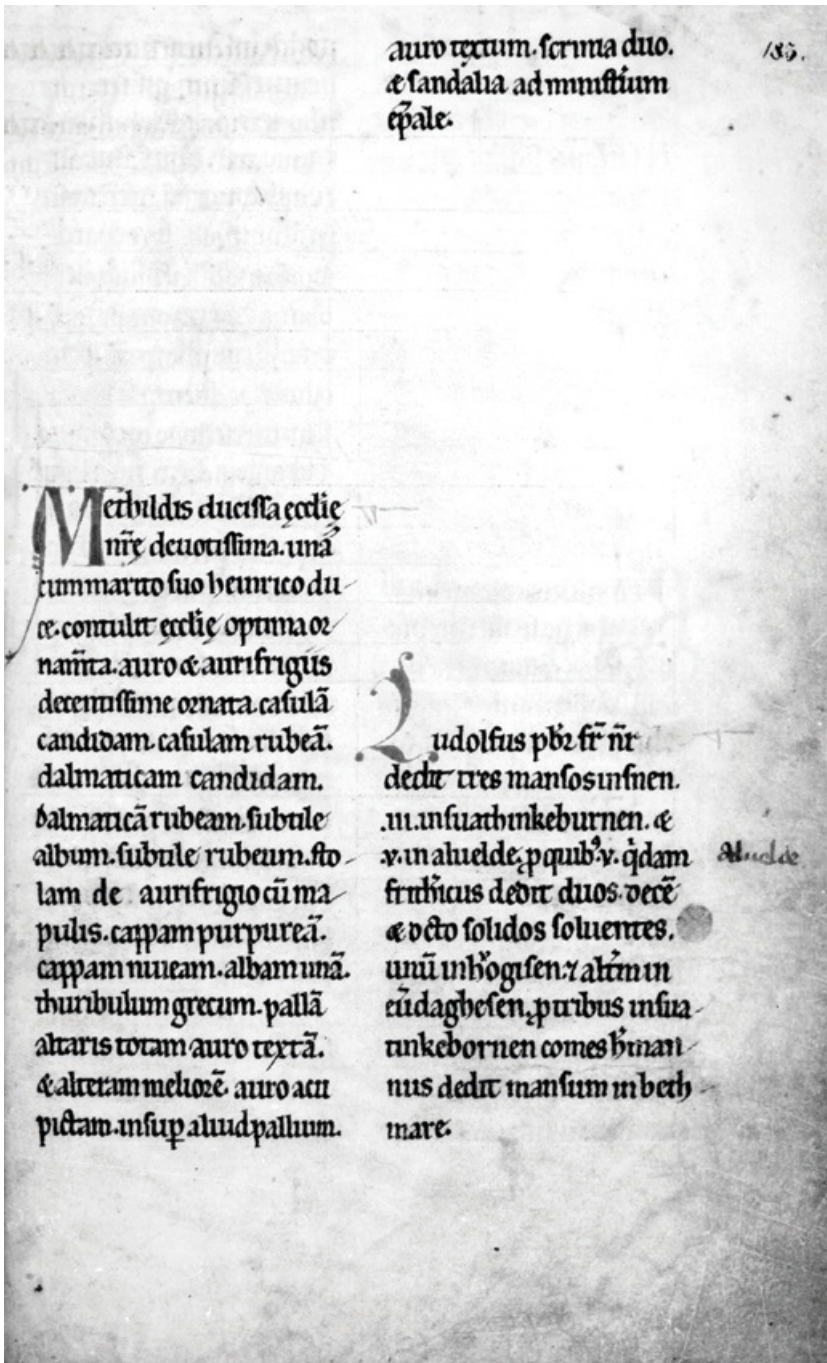 Methildis ducissa ęccłię
nr̄ę deuotissima. unā
cum marito suo heinrico du-
ce. contulit ęccłię optima or-
nam̄ta. auro & aurifrigiis
decentissime ornata. casulā
candidam. casulam rubeā.
dalmaticam candidam.
dalmaticā rubeam. subtile
album. subtile rubeum. sto-
lam de aurifrigio cū ma-
pulis. cappam purpureā.
cappam niueam. albam unā.
thuribulum grecum. pallā
altaris totam auro textā.
& alteram meliorē. auro acu
pictam. insuꝑ aliud pallium.
auro textum. scrinia duo.
& sandalia ad minist̄ium
ep̄ale.
Ludolfus pb̄r fr̄ nr̄
dedit tres mansos insnen.
.iii. insuathinkeburnen. &
.v. in aluelde, ꝓ quibꝰ .v. q̇dam
frithͥicus dedit duos. decē
& octo solidos soluentes.
unū inh̄ogisen. ⁊ alt̄m in
eū̄daghesen, ꝓ tribus insua-
tinkebornen comes h̄man-
nus dedit mansum inbeth-
mare.
Aluelde
185.